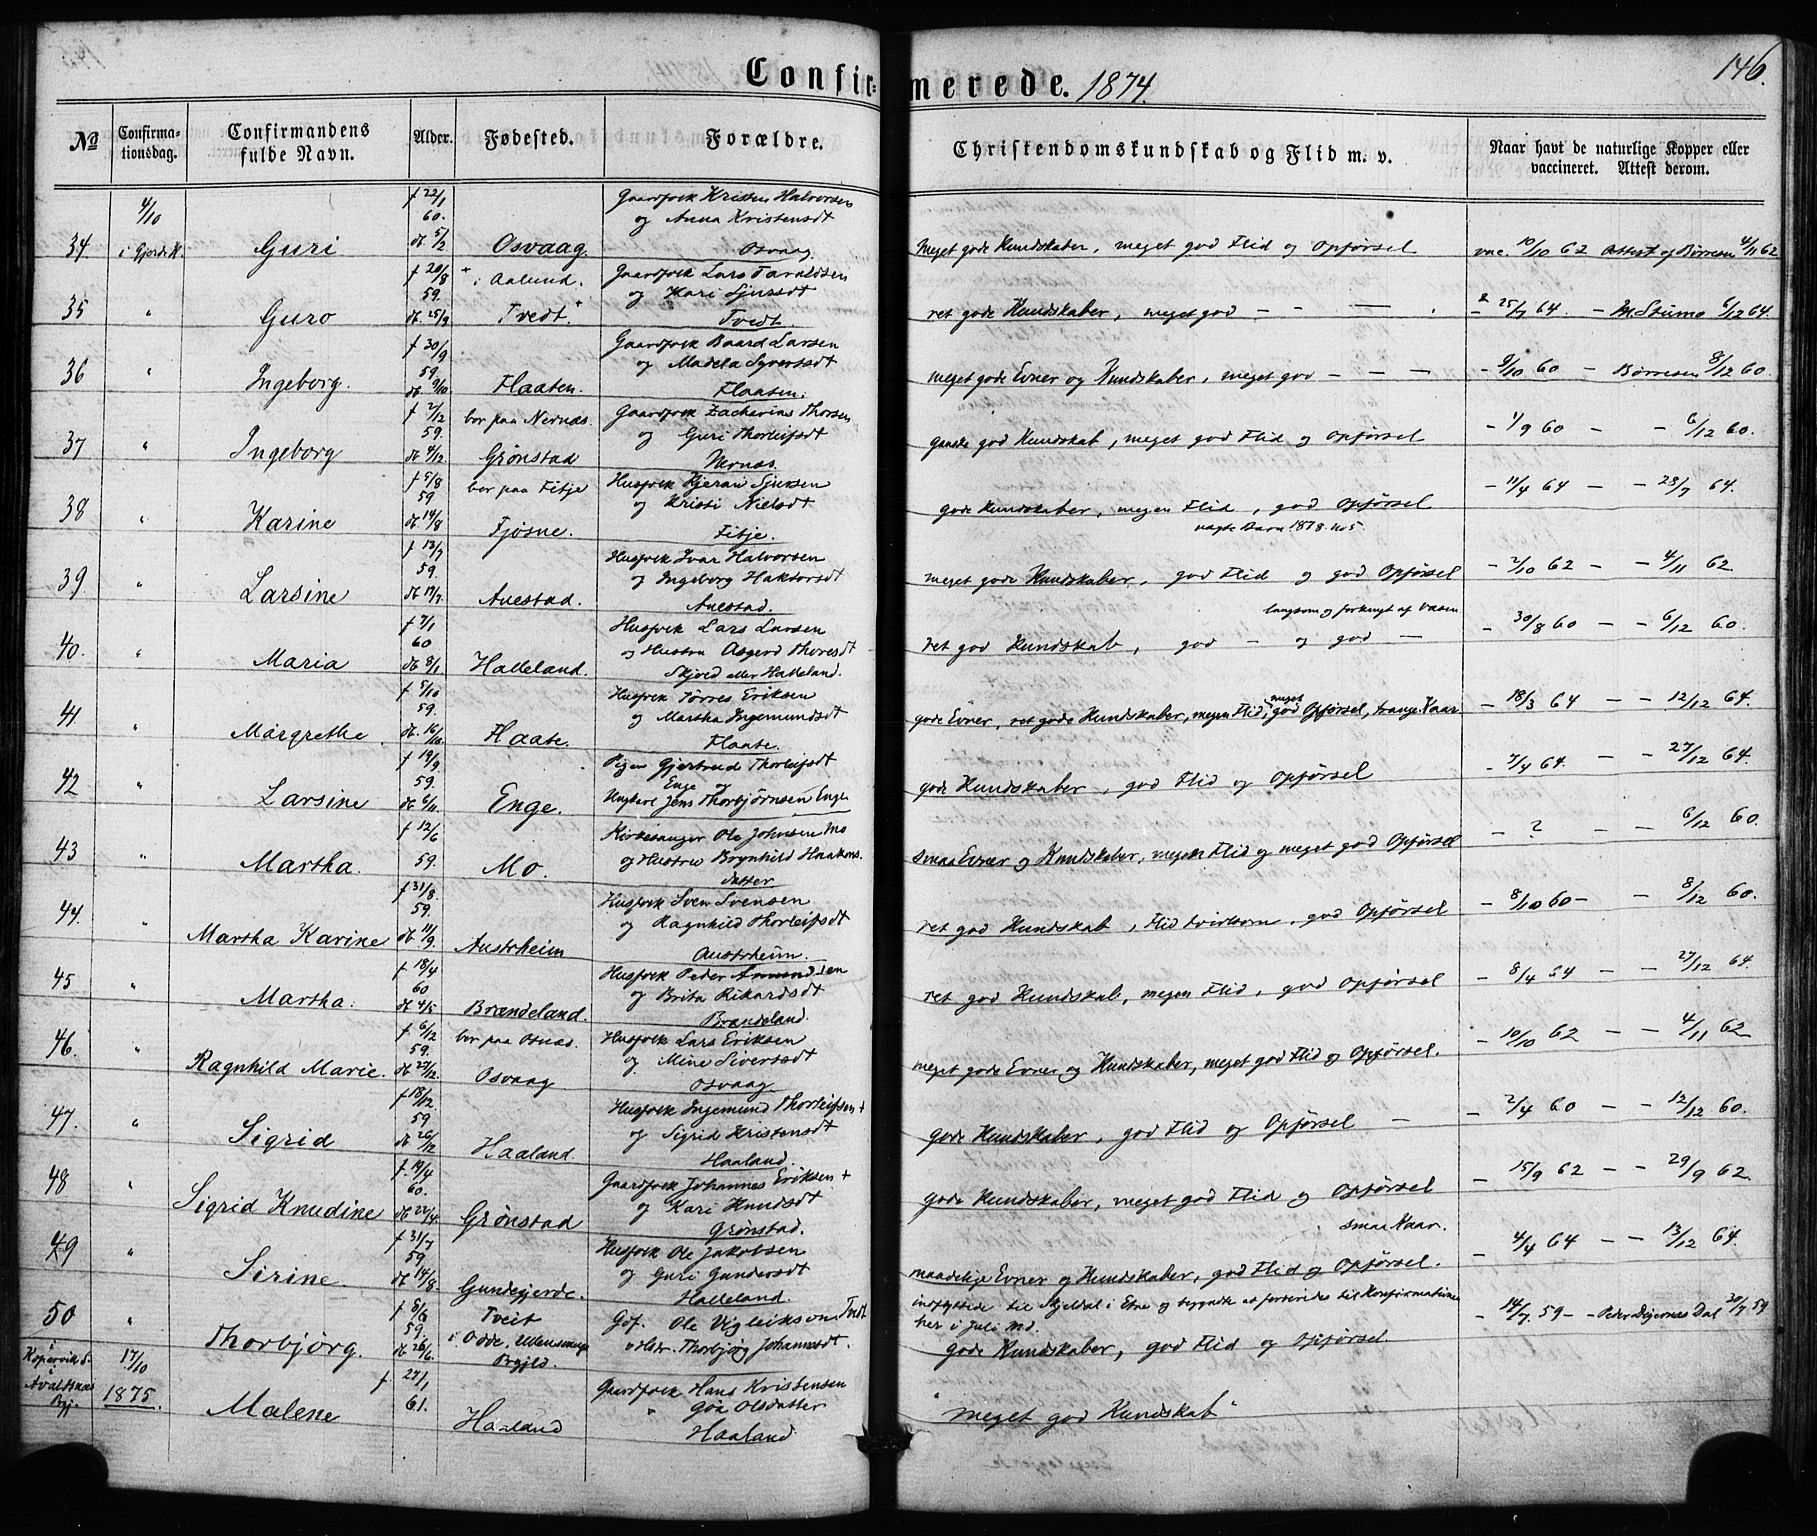 146.
Confirmerede. 1874.
No
Confirmationsdag.
Confirmandens fulde Navn.
Alder.
Fødested.
Forældre.
Christendomskundskab og Flid m. v.
Naar havt de naturlige Kopper eller vaccineret. Attest derom.
4/10 f 22/1 60. Gaardfolk Kristen Halvorsen
og Anna Kristensdt
34 i Gjerde K. Guri dt. 5/2 Osvaag. Osvaag. Meget gode Kundskaber, meget god Flid og Opførsel vac. 10/10 62 Attest af Børresen 4/11 62
f 20/8 59. i Aalund. Gaardfolk Lars Taraldsen
og Kari Sjursdt
35 " Guro dt. 25/9 Tvedt. Tvedt ret gode Kundskaber, meget god - - — - 25/7 64. - M. Stumo 6/12 64.
f 30/9 59. Gaardfolk Baard Larsen
og Madela Syversdt
36 " Ingeborg. dt. 9/10 Flaaten. Flaaten. meget gode Evner og Kundskaber, meget god - - - - 9/10 60 - Børresen 8/12 60
f 2/12 59. bor paa Nernæs. Gaardfolk Zacharias Thorsen
og Guri Thorleifsdt
37 " Ingeborg dt 4/12 Grønstad Nernæs. ganske god Kundskab, meget god Flid og Opførsel - 1/9 60 - - 6/12 60.
f 5/8 59 bor paa Fitje Husfolk Kjeran Sjursen
og Kristi Nielsdt
38 " Karine dt. 14/8 Fjøsne. Fitje. gode Kundskaber, megen Flid, god Opførsel - 11/4 64 - - 28/7 64.
uægte Barn 1878 no 5.
f 13/7 59. Husfolk Ivar Halvorsen
og Ingeborg Haktorsdt
39 " Larsine dt 17/7. Auestad. Auestad. meget gode Kundskaber, god Flid og god Opførsel - 2/10 62 - - 4/11 62
langsom og forknyt af Væsen
f 7/1 60 Husfolk Lars Larsen
og Hustru Asgerd Thoresdt
40. " Maria dt 8/1 Halleland. Skjold eller Halleland. ret god Kundskab, god - og god — - 30/8 60 - - 6/12 60.
f 5/10 59. Husfolk Tørres Eriksen
og Martha Ingemundsdt
41 " Margrethe. dt. 16/10. Flaate. Flaate. gode Evner, ret gode Kundskaber, megen Flid, meget god Opførsel, trange Kaar - 18/3 64 - - 12/12 64.
f 19/9 59. Pigen Gjertrud Thorleifsdt
Enge og
42 " Larsine dt 6/11. Enge. Ungkarl Jens Thorbjørnsen Enge gode Kundskaber, god Flid og Opførsel - 7/4 64. - - 27/12 64.
f 12/6 59. Kirkesanger Ole Johnsen Mo
43 " Martha. Mo. og Hustru Brynhild Haakons.
datter smaa Evner og Kundskaber, megen Flid og meget god Opførsel - ? - - 6/12 60.
f 31/8 59. Husfolk Sven Svensen
og Ragnhild Thorleifsdt
44. " Martha Karine dt 11/9. Austrheim Austrheim. ret god Kundskab, Flid tvivlsom, god Opførsel - 8/10 60 - - 8/12 60.
f 18/4 60 Husfolk Peder Amundsen
og Brita Rikardsdt
45 " Martha. dt 4/5 Brændeland. Brændeland. ret god Kundskab, megen Flid, god Opførsel - 8/4 54 - - 27/12 64.
f 6/12 59. bor paa Osnæs. Husfolk Lars Eriksen
og Mine Siversdt
46. " Ragnhild Marie. dt 27/12. Osvaag Osvaag meget gode Evner og Kundskaber, meget god Flid og Opførsel. - 10/10 62 - - 4/11 62
f 18/12. 59 Husfolk Ingemund Thorleifsen +
og Sigrid Kristensdt
47. " Sigrid dt 26/12 Haaland Haaland. gode Kundskaber, god Flid og Opførsel — - 2/4 60 - - 12/12 60.
f. 19/4 60. Gaardfolk Johannes Eriksen +
og Kari Knudsdt
48 " Sigrid Knudine dt 22/4 Grønstad Grønstad. gode Kundskaber, meget god Flid og Opførsel - 15/9 62 - - 29/9 62
smaa Kaar.
f 31/7 59 Husfolk Ole Jakobsen
og Guri Gundersdt
49 " Sirine dt 14/8. Gundegjerde. Halleland. maadelige Evner og Kundskaber, god Flid og Opførsel. - 4/4 64 - - 13/12 64.
50 " Thorbjörg. f 8/6 59, dt 26/6. Tveit i Odde, Ullensvangs Prgjld. Gdf. Ole Vigleiksen Tvet.
Thorbjørg Johannesdt.
indflyttede til Skjeldal i Etne og begyndte at forberedes til Konfirmationen
her i Juli Md.
gode Kundskaber, god Flid og Opførsel. - 14/7. 59 - - Peder Dal 30/7 59
i Kopervik S. Avaldsnæs Pgj. 17/10 1875. Malene f 24/1 61. Haaland Gaardfolk Hans Kristensen
" Göa Olsdatter
Haaland "meget god Kundskab"